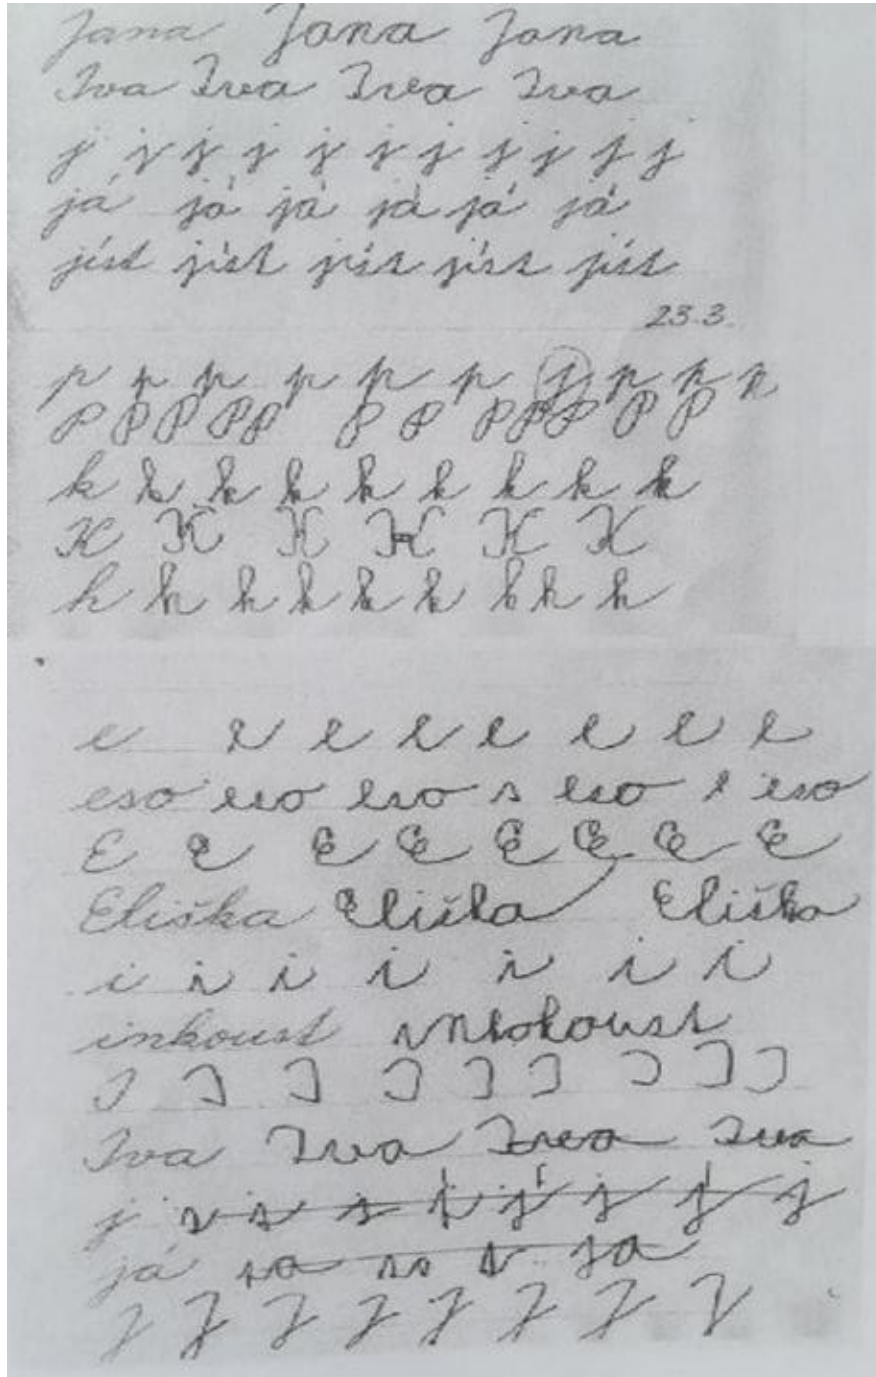 Jana Jana Jana
Iva Iva Iva Iva
j j j j j j j j j j j
já já já já já já
jíst jíst jíst jíst jíst
23.3.
p p p p p p j p p p
P P P P P P P P P P P P
k k k k k k k k k
K K K K K K
h h h k k k h h h
e e e e e e e e
eso eso eso s eso e eso
E E E E E E E E
Eliška Eliška Eliška
i i i i i i i
inkoust inkokoust
I I I I I I I I
Iva Iva Iva Iva
j s s s j j j j j
já ja
J J J J J J J J